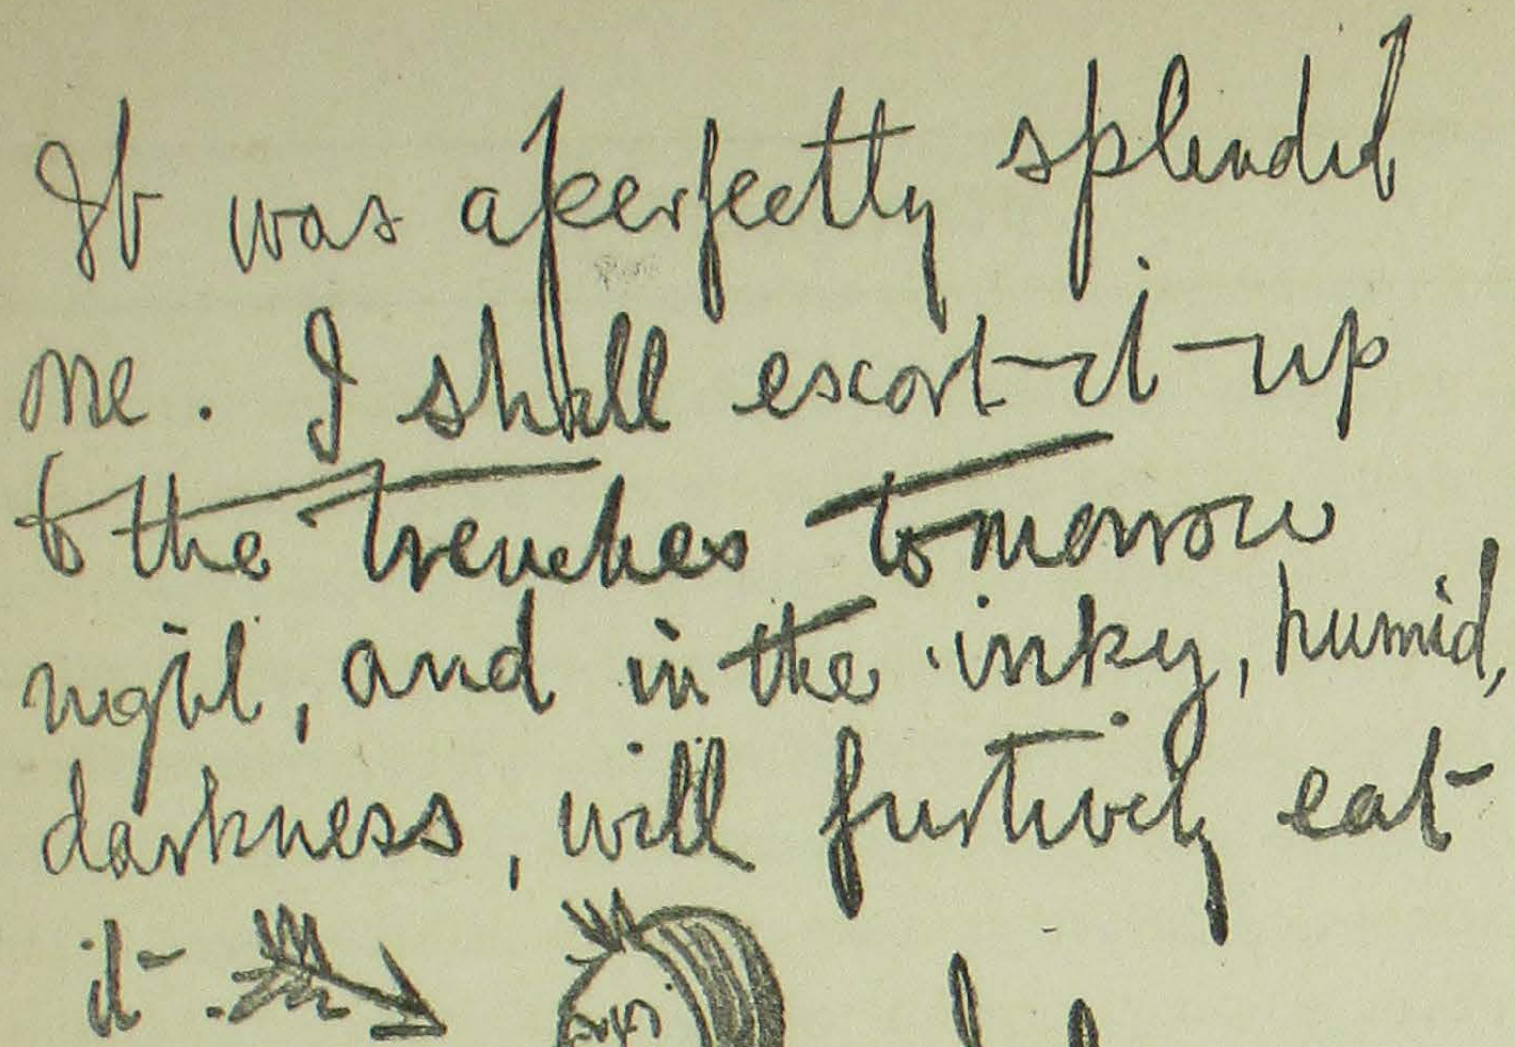 It was a perfectly splendid
one. I shall escort it up
to the trenches tomorrow
night, and in the inky, humid,
darkness, will furtively eat
it.